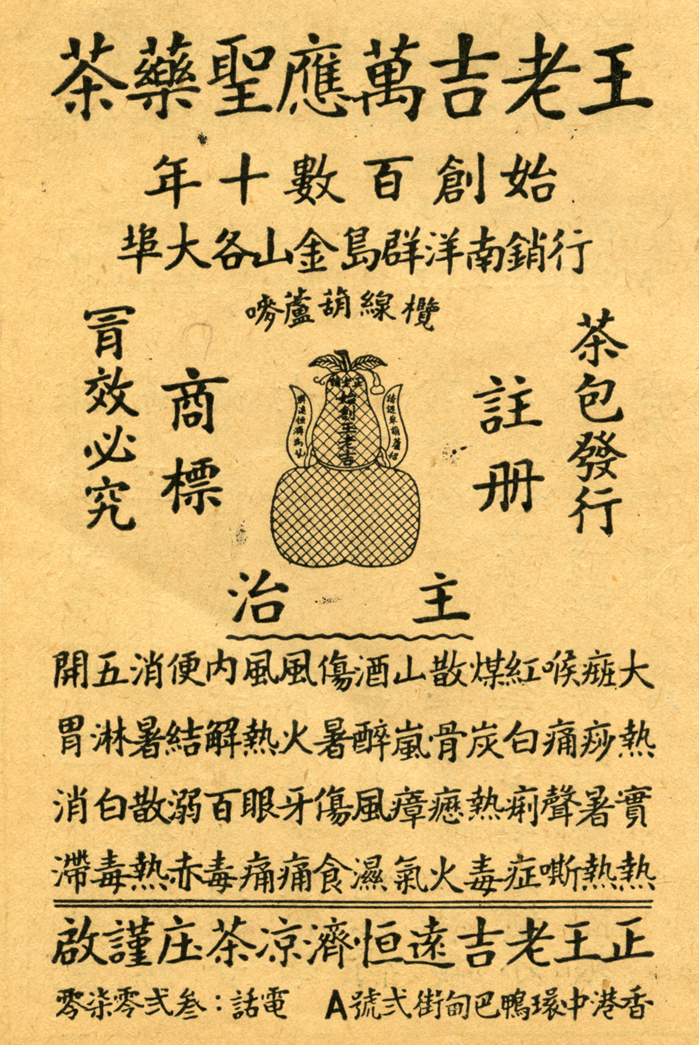 王老吉萬應聖藥茶
始創百數十年
行銷南洋群島金山各大埠
欖線葫蘆嘜
茶包發行
註冊
始創王老吉
商標
冒效必究
主治
大熱實熱
癍痧暑熱
喉痛聲嘶
紅白痢症
煤炭熱毒
散骨癋火
山嵐瘴氣
酒醉風濕
傷暑傷食
風火牙痛
風熱眼痛
內解百毒
便結溺赤
消暑散熱
五淋白毒
開胃消滯
正王老吉遠恒濟凉茶庄謹啟
香港中環鴨巴甸街弍號A 電話：叁弍零柒零